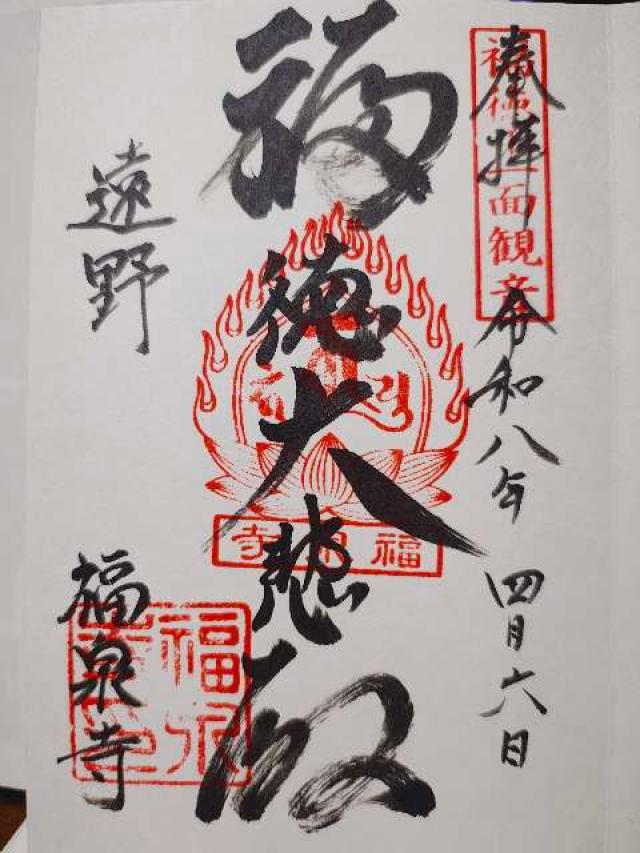 奉拝
令和八年
四月六日
福徳十一面観音
福徳大悲殿
福泉寺
遠野
福泉寺